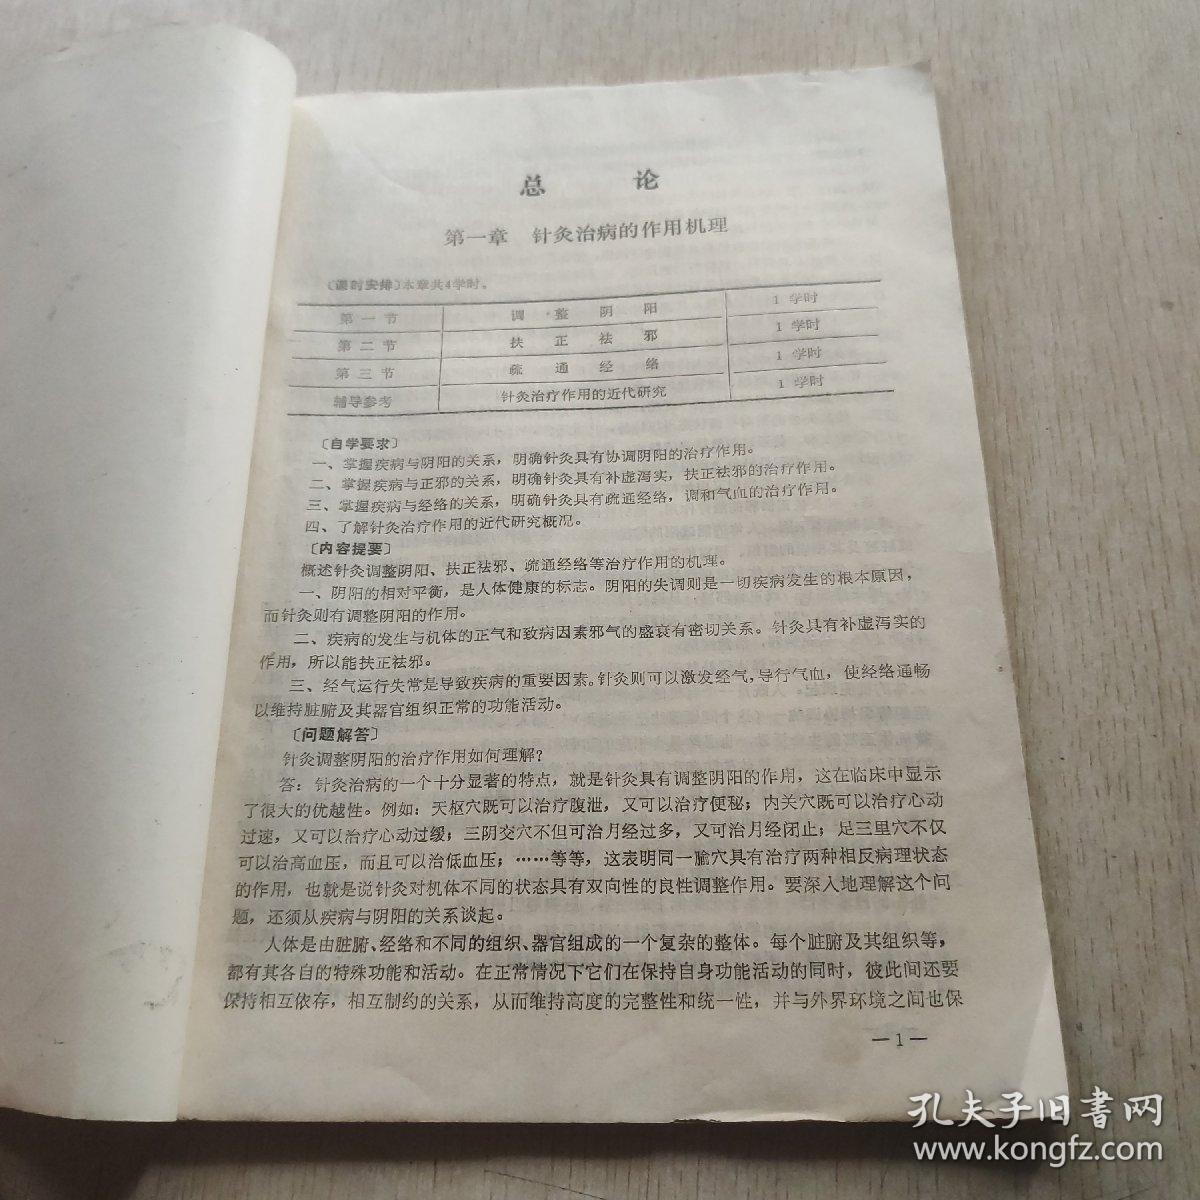 总 论
第一章 针灸治病的作用机理
〔课时安排〕本章共4学时。
第一节 调整阴阳 1 学时
第二节 扶正祛邪 1 学时
第三节 疏通经络 1 学时
辅导参考 针灸治疗作用的近代研究 1 学时
〔自学要求〕
一、掌握疾病与阴阳的关系，明确针灸具有协调阴阳的治疗作用。
二、掌握疾病与正邪的关系，明确针灸具有补虚泻实，扶正祛邪的治疗作用。
三、掌握疾病与经络的关系，明确针灸具有疏通经络，调和气血的治疗作用。
四、了解针灸治疗作用的近代研究概况。
〔内容提要〕
概述针灸调整阴阳、扶正祛邪、疏通经络等治疗作用的机理。
一、阴阳的相对平衡，是人体健康的标志。阴阳的失调则是一切疾病发生的根本原因，
而针灸则有调整阴阳的作用。
二、疾病的发生与机体的正气和致病因素邪气的盛衰有密切关系。针灸具有补虚泻实的
作用，所以能扶正祛邪。
三、经气运行失常是导致疾病的重要因素。针灸则可以激发经气，导行气血，使经络通畅
以维持脏腑及其器官组织正常的功能活动。
〔问题解答〕
针灸调整阴阳的治疗作用如何理解？
答：针灸治病的一个十分显著的特点，就是针灸具有调整阴阳的作用，这在临床中显示
了很大的优越性。例如：天枢穴既可以治疗腹泄，又可以治疗便秘；内关穴既可以治疗心动
过速，又可以治疗心动过缓；三阴交穴不但可治月经过多，又可治月经闭止；足三里穴不仅
可以治高血压，而且可以治低血压；……等等，这表明同一腧穴具有治疗两种相反病理状态
的作用，也就是说针灸对机体不同的状态具有双向性的良性调整作用。要深入地理解这个问
题，还须从疾病与阴阳的关系谈起。
人体是由脏腑、经络和不同的组织、器官组成的一个复杂的整体。每个脏腑及其组织等，
都有其各自的特殊功能和活动。在正常情况下它们在保持自身功能活动的同时，彼此间还要
保持相互依存，相互制约的关系，从而维持高度的完整性和统一性，并与外界环境之间也保
—1—
孔夫子旧書网
www.kongfz.com